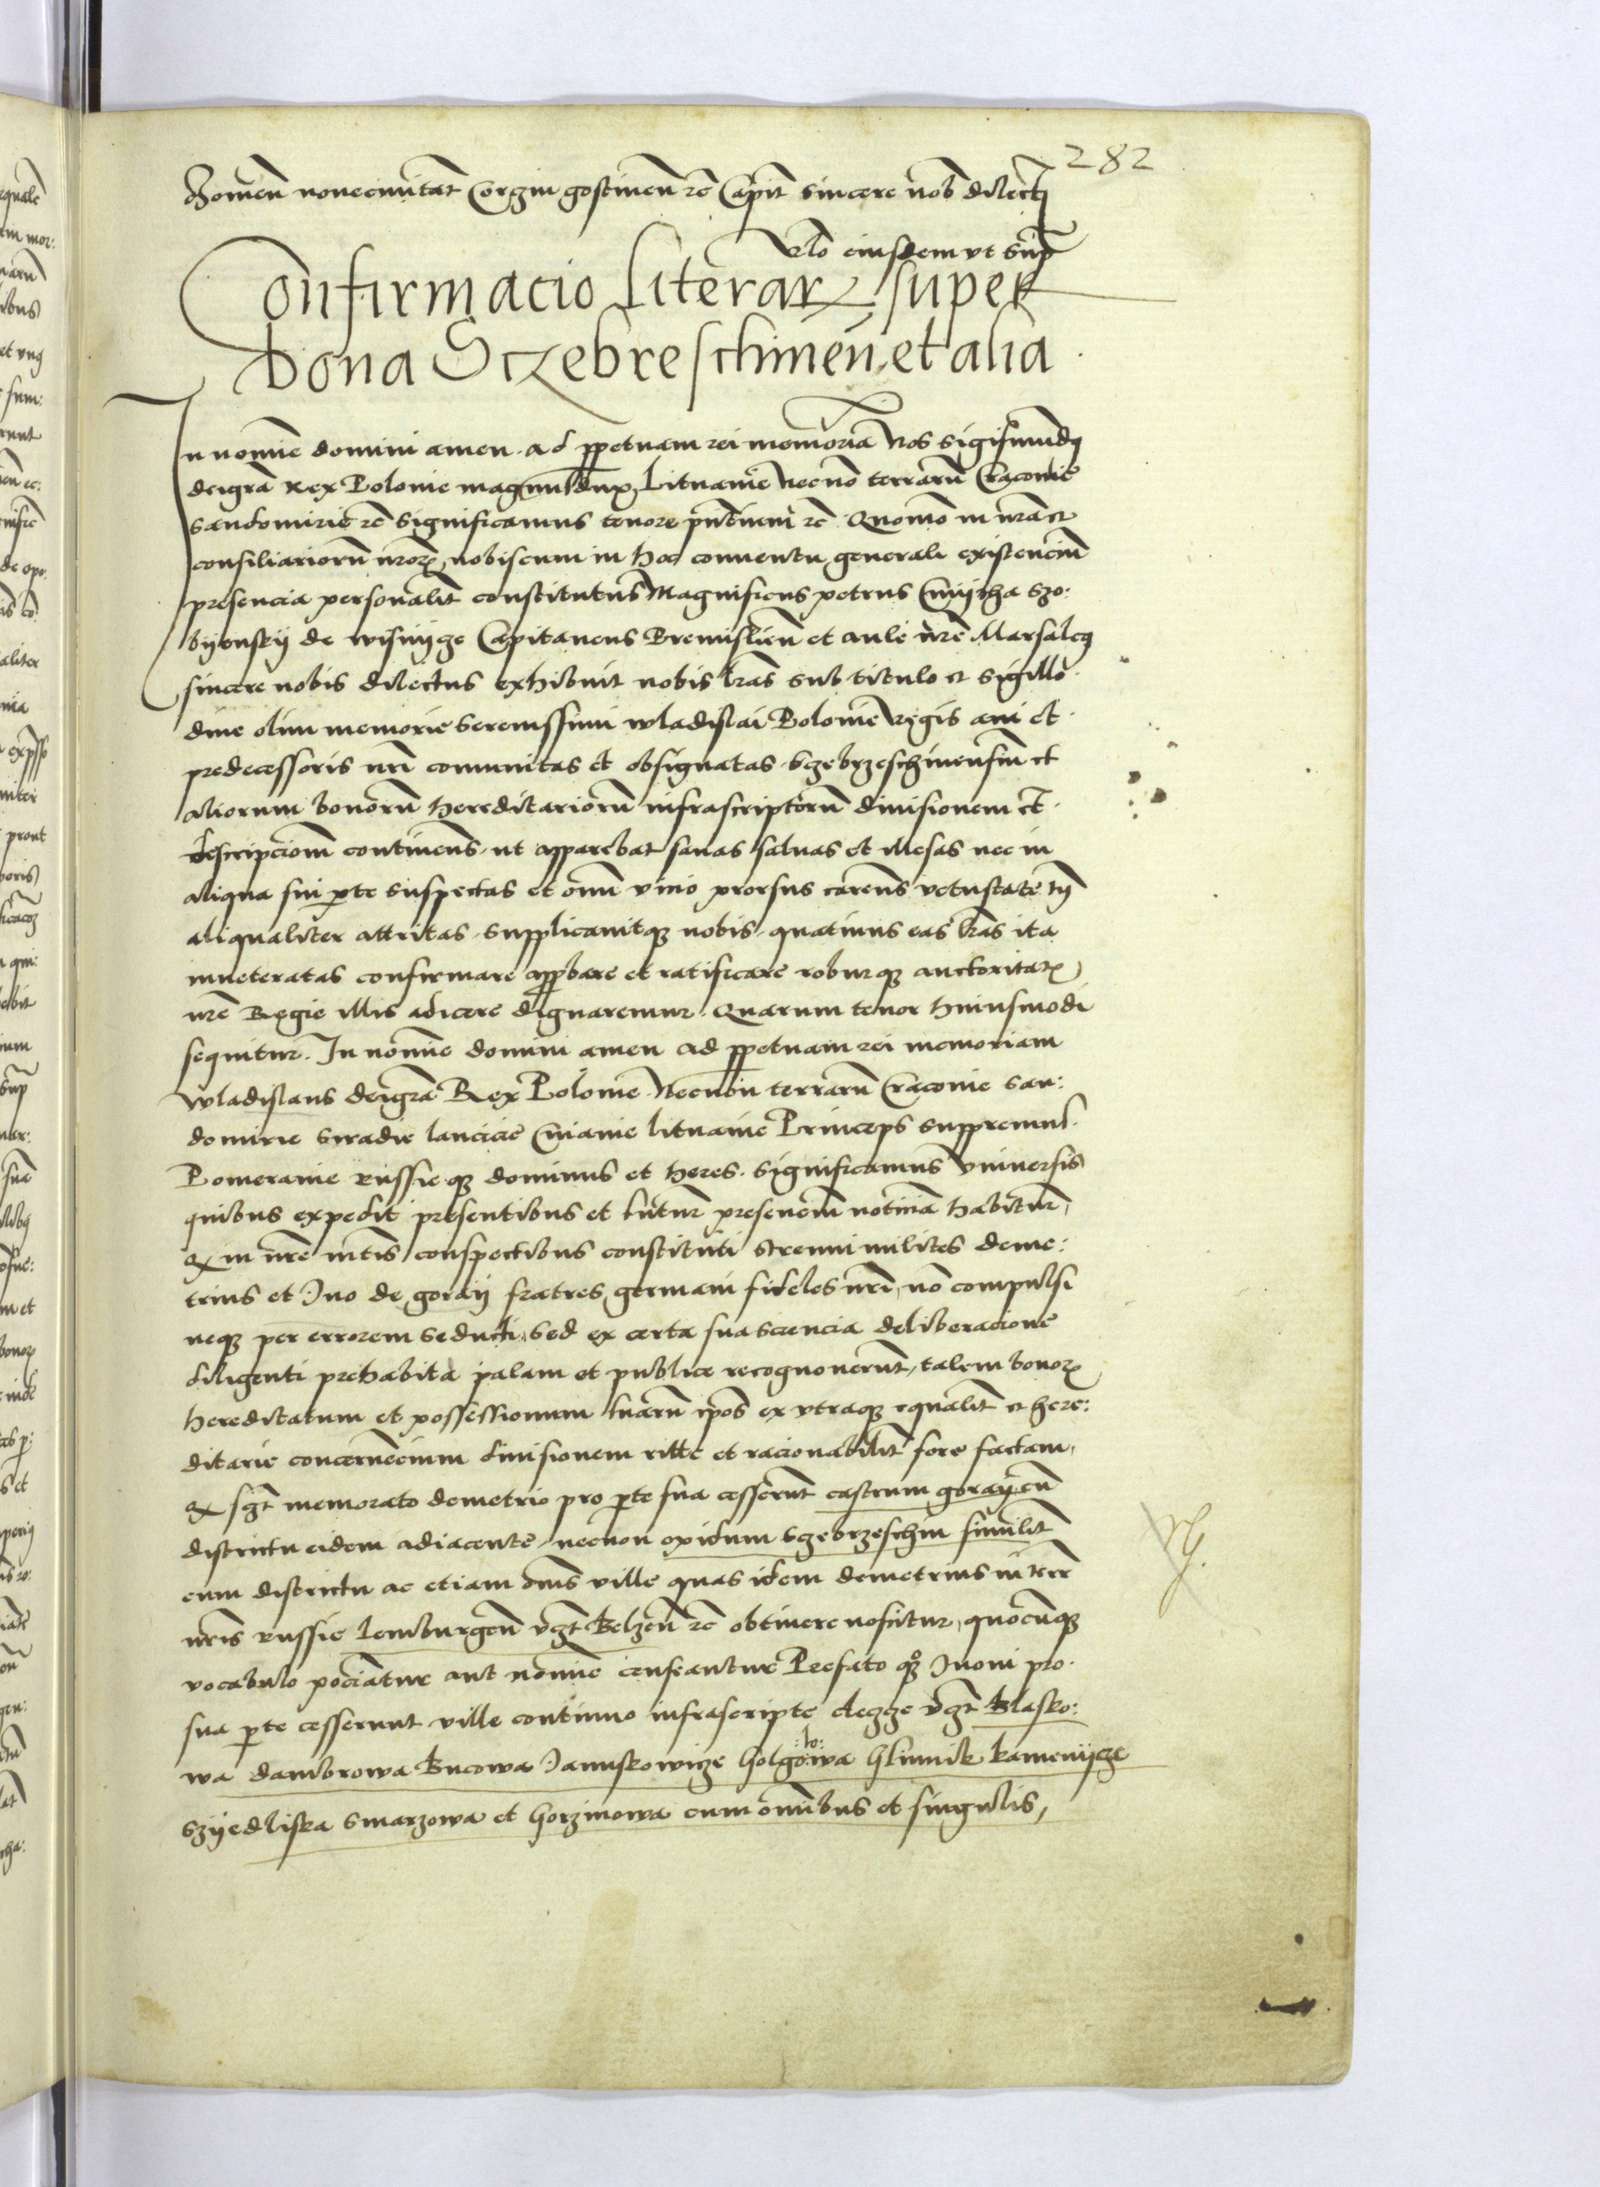 282
nouecivitat Corzin gostinen rc Capit sincere nob dilecti
Rlo eiusdem vt supra
Confirmacio literar super
bona Sczebreschinen et alia
In nomine domini amen ad ppetuam rei memoria Nos Sigismundus
dei gra Rex Polonie magnus dux Lituanie necno terrarum Cracouie
Sandomirie rc Significamus tenore pntium rc Quomo in nra et
consiliariorum nror nobiscum in hoc conuentu generali existencium
presencia personalit constitutus Magnificus petrus Cmijtha Szo:
bijenskij de wisnijcze Capitaneus Premislien et aule nre Marsalcus
sincere nobis dilectus exhibuit nobis lras sub titulo et sigillo
diue olim memorie Serenissimi wladislai Polonie Regis aui et
predecessoris nri comunitas et obsignatas Szebrzeschinensium et
aliorum bonorum hereditariorum infrascriptorum diuisionem et
descripcionem continens ut apparebat sanas saluas et illesas nec in
aliqua sui pte suspectas et omni vicio prorsus carens vetustate tn
aliqualiter attritas supplicauitq nobis quatinus eas lras ita
inueteratas confirmare appbare et ratificare roburq auctoritatis
nre Regie illis adicere dignaremur Quarum tenor huiusmodi
sequitur. In nomine domini amen ad ppetuam rei memoriam
wladislaus dei gra Rex Polonie Necnon terrarum Cracouie San:
domirie Siradie lancicie Cuiauie lituanie Princeps suppremus
Pomeranie Russieq dominus et heres. significamus vniuersis
quibus expedit presentibus et futur presencium noticiam habitur
Q in nre mtis conspectibus constituti strenui milites deme:
trius et Iuo de goraij fratres germani fideles nri, no compulsi
neq per errorem seducti, sed ex certa sua sciencia deliberacione
diligenti prehabita palam et publice recognouerunt, talem bonor
hereditatum et possessionum suarum ipos ex vtraq equalit et here:
ditarie concernencium diuisionem ritte et racionabilit fore factam,
Q sqt memorato demetrio pro pte sua cesserunt castrum goraij cum
districtu eidem adiacente, necnon opidum Szebrzeschin similit
cum districtu ac etiam omes ville quas idem demetrius in terr
nris russie lemburgen vgt belzen rc obtinere noscitur, quocunq
vocabulo pociatur aut nomine censeantur Prefato qq Iuoni pro
sua pte cesserunt ville continuo infrascripte Clezze vgt Blasko:
wa dambrowa Bucowa Januskowicze Golgo:lo:wa Glinnik kamenijcze
Szijedliska Smarzowa et Gorzinowa cum omibus et singulis,